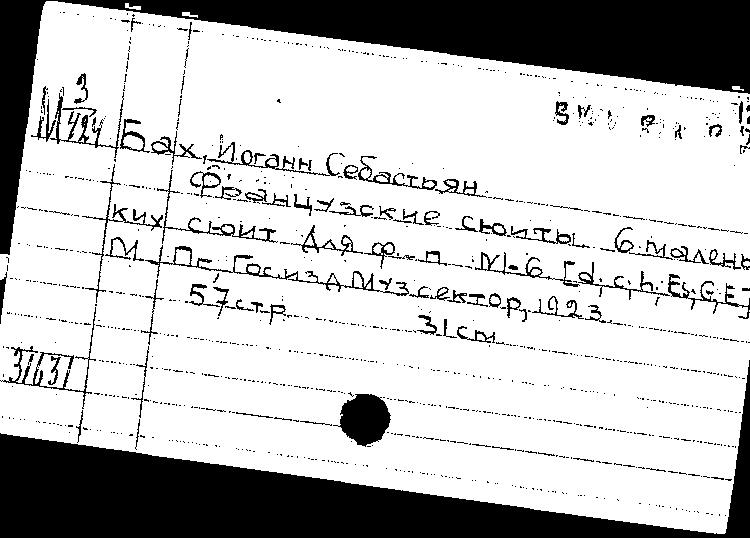 М 3/424
Бах, Иоганн Себастьян.
Французские сюиты. 6 малень
ких сюит для ф.-п. №1-6. [d, c, h, Es, G, E]
М.-Пг., Гос. изд. Муз сектор, 1923.
57 стр. 31 см
31631